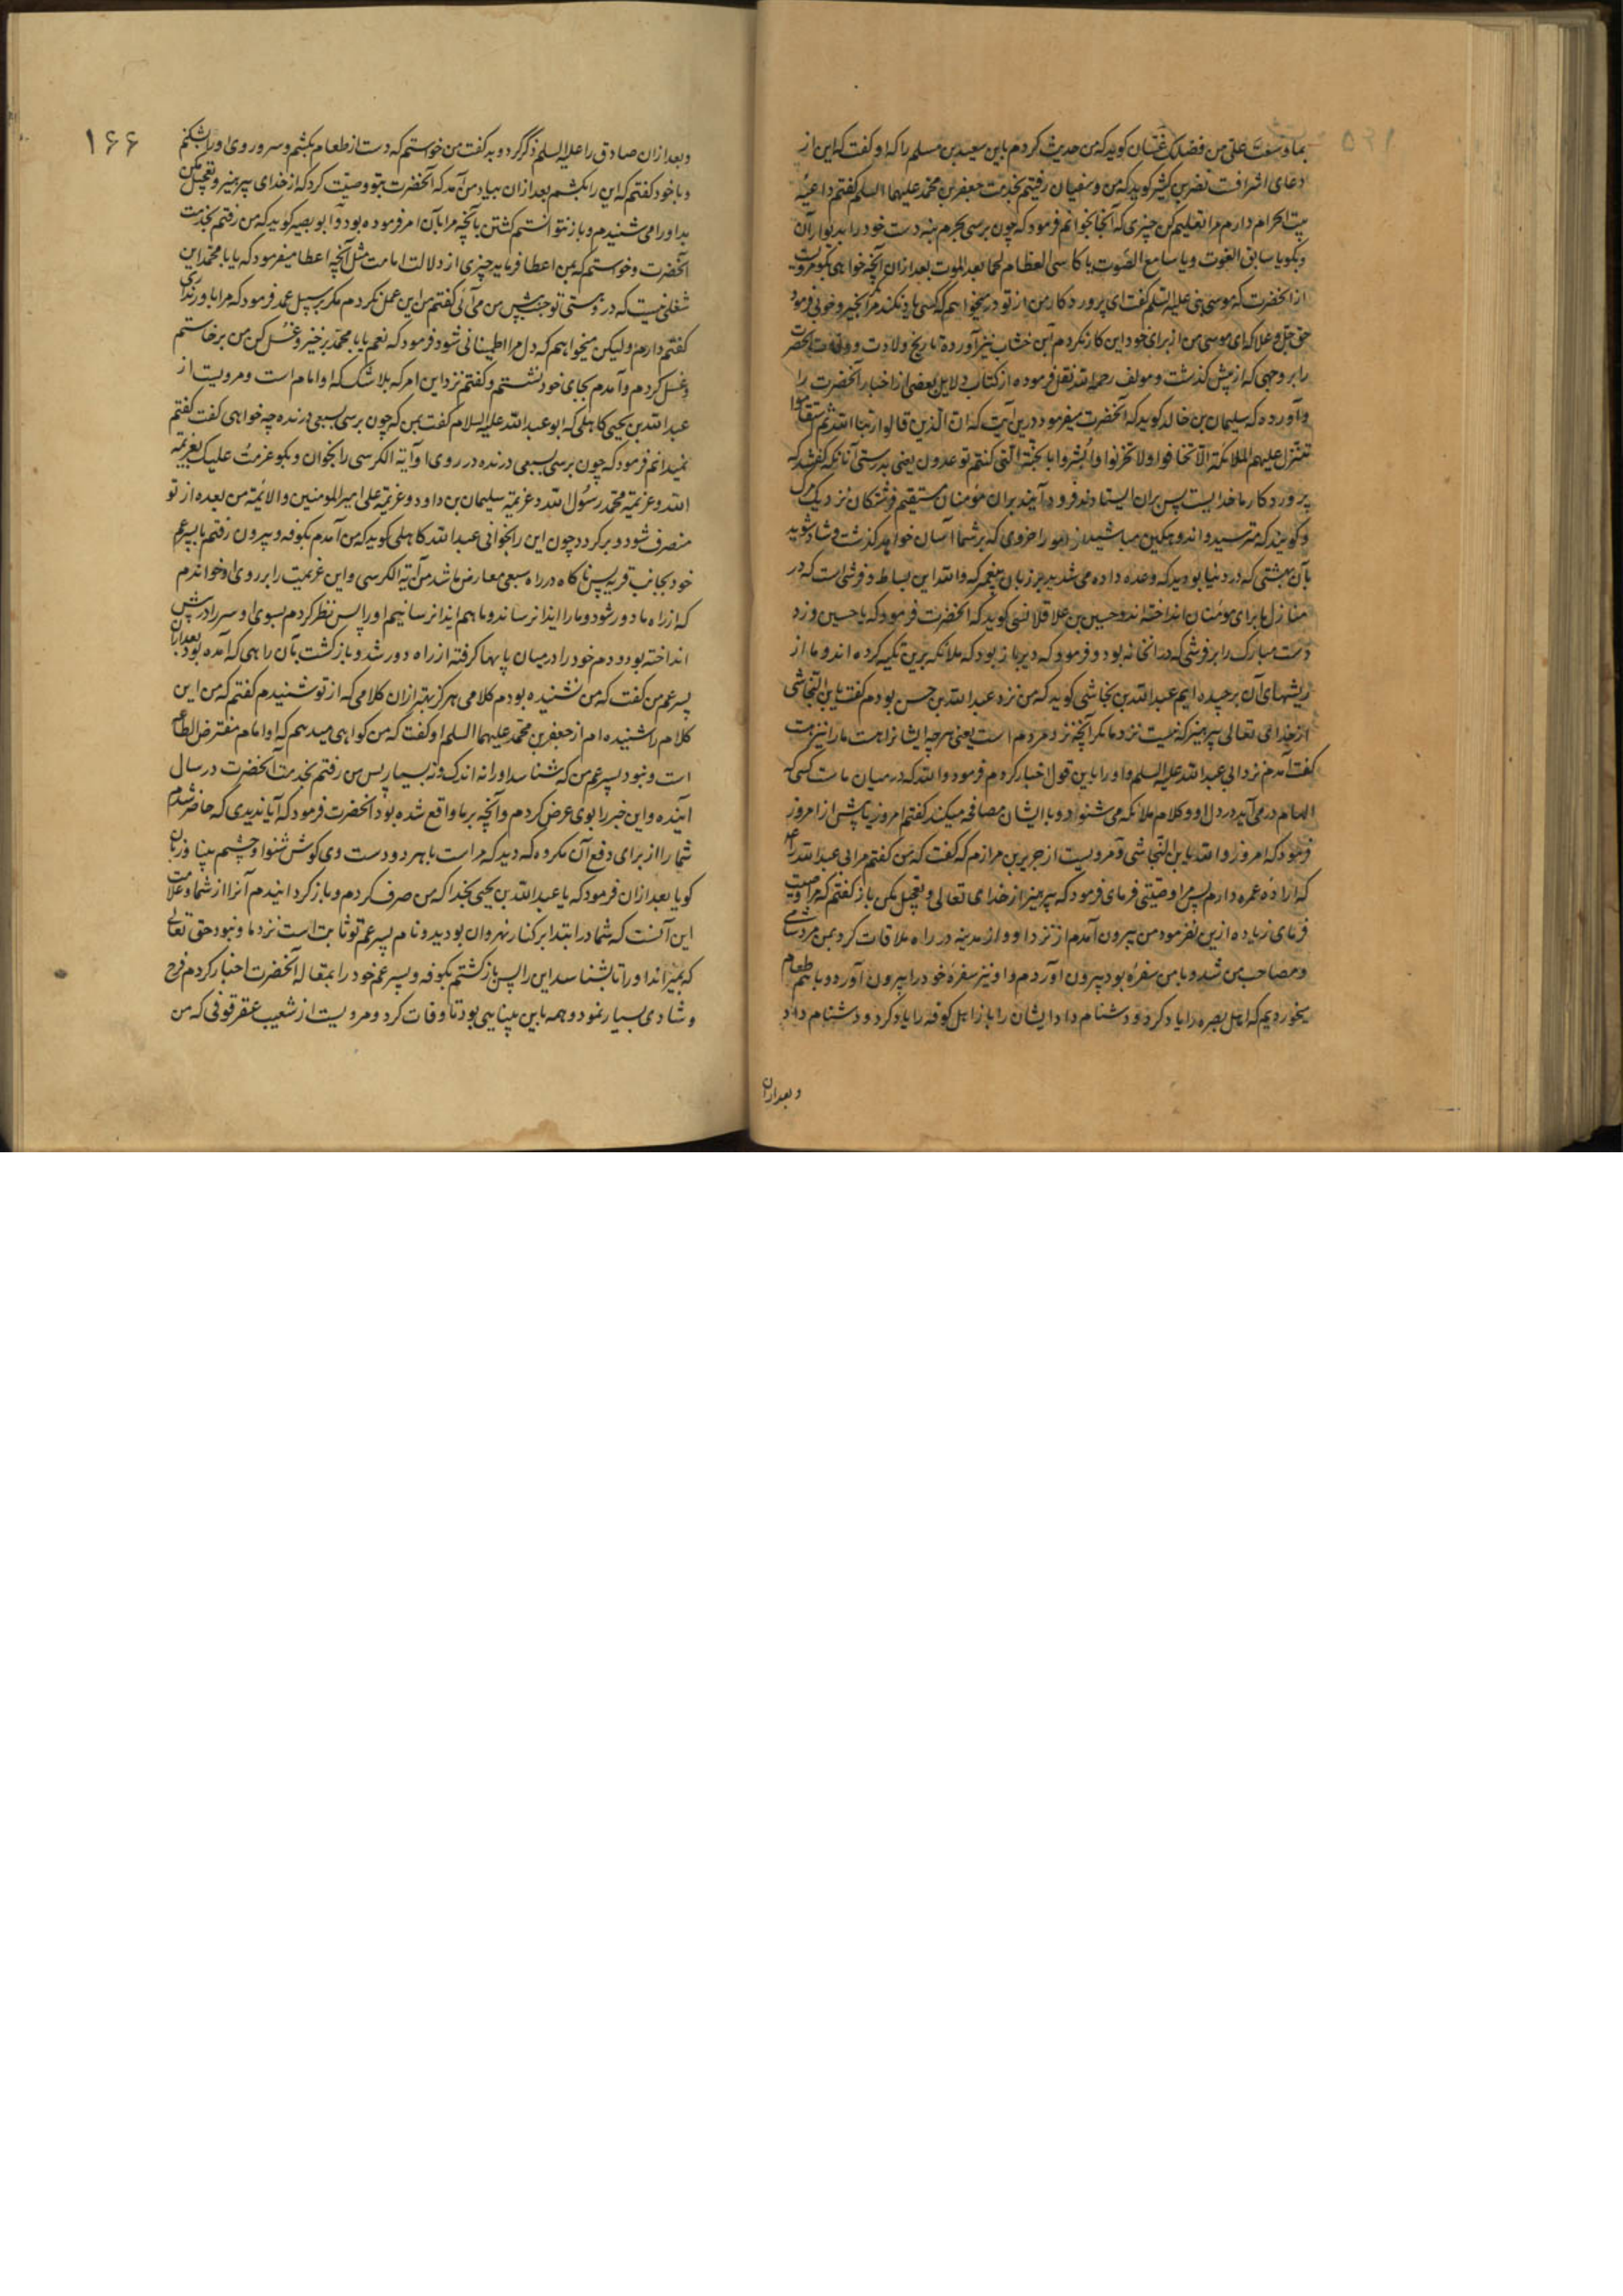 بما وسعت علی من فضلک غسان کوید که من حدیث کردم باین سعید بن مسلم را که او کفت که این از
دعای اشرافت نضر بن کثیر کوید که من و سفیان رفتیم بخدمت جعفر بن محمد علیهما السلم کفتم داعیهٔ
بیت الحرام دارم مرا تعلیم کن چیزی که آنجا بخوانم فرمود که چون برسی بحرم بنه دست خود را بدیوار آن
و بکو یا سابق الفوت و یا سامع الصوت یا کاسی العظام لحما بعد الموت بعد ازان آنچه خواهی بکو مرویست
از آنحضرت که موسی بنی علیه السلم کفت ای پرورد کار من از تو درمیخواهم که کسی یاد نکند مرا مکر بخیر و خوبی فرمود
حق جل و علا که ای موسی من از برای خود این کار نکردم ابن خشاب نیز آورده تاریخ ولادت و وفات آنحضرت
را بر وجهی که از پیش کذشت و مولف رحمه الله نقل فرموده از کتاب دلایل بعضی از اخبار آنحضرت را
و آورده که سلیمان بن خالد کوید که آنحضرت میفرمود درین آیت که ان الذین قالوا ربنا الله ثم استقاموا
تتنزل علیهم الملائکة الا تخافوا ولا تحزنوا و ابشروا بالجنة التی کنتم توعدون یعنی بدرستی آنانکه کفتند که
پرورد کار ما خدایست پس بران ایستادند فرود آیند بران مؤمنان مستقیم فرشتکان نزدیک مرک
و کویند که مترسید و اندوهکین مباشید از امور اخروی که بر شما آسان خواهد کذشت و شاد شوید
بآن بهشتی که در دنیا بودید که وعده داده می شدید بر زبان پیغمبر که والله این بساط و فرشی است که در
منازل ما برای مؤمنان انداخته اند و حسین بن علا قلانسی کوید که آنحضرت فرمود که یا حسین و زد
دست مبارک را بر فرشی که در آنخانه بود و فرمود که دیر باز بود که ملائکه برین تکیه کرده اند و ما از
ریشهای آن برچیده ایم عبد الله بن نجاشی کوید که من نزد عبد الله بن حسن بودم کفت یا بن النجاشی
از خدای تعالی بپرهیز که نیست نزد ما مکر آنچه نزد مردم است یعنی هرچه ایشانرا هست ما را نیز هست
کفت آمدم نزد ابی عبد الله علیه السلم و او را باین قول اخبار کردم فرمود والله که در میان ما هست کسی که
الهام در می آید در دل او و کلام ملائکه می شنود و با ایشان مصافحه میکند کفتم امروز یا پیش از امروز
فرمود که امروز والله یا بن النجاشی و مرویست از جریر بن مرازم که کفت که من کفتم مر ابی عبد الله را ع
که ارادهٔ عمره دارم پس مرا وصیتی فرمای فرمود که بپرهیز از خدای تعالی و تعجیل مکن باز کفتم که مرا وصیت
فرمای زیاده ازین نفرمود من بیرون آمدم از نزد او و از مدینه در راه ملاقات کرد بمن مرد شامی
و مصاحب من شد و با من سفرهٔ بود بیرون آوردم و او نیز سفرهٔ خود را بیرون آورد و با هم طعام
میخوردیم که اهل بصره را یاد کرد و دشنام داد ایشان را باز اهل کوفه را یاد کرد و دشنام داد
و بعد ازان
۱۶۶
و بعد ازان صادق را علیه السلم ذکر کرد و بد کفت من خواستم که دست از طعام بکشم و سر و روی او را بشکنم
و با خود کفتم که این را بکشم بعد ازان بیاد من آمد که آنحضرت بتو وصیت کرد که از خدای بپرهیز و تعجیل مکن
بد او را می شنیدم و باز نتوانستم کشتن بآنچه مرا بآن امر فرموده بود و ابو بصیر کوید که من رفتم بخدمت
آنحضرت و خواستم که بمن اعطا فرماید چیزی از دلالت امامت مثل آنچه اعطا میفرمود که یا با محمد این
شغلی نیست که در تو جنب پیش من می آئی کفتم من این عمل نکردم مکر بر سبیل عمد فرمود که مرا باور نداری
کفتم دارم ولیکن میخواهم که دل مرا اطمینانی شود فرمود که نعم یا با محمد برخیز و غسل کن من برخاستم
و غسل کردم و آمدم بجای خود نشستم و کفتم نزد این امر که بلا شک که او امام است و مرویست از
عبد الله بن یحیی کاهلی که ابو عبد الله علیه السلام کفت بمن که چون برسی بسبعی درنده چه خواهی کفت کفتم
نمیدانم فرمود که چون برسی بسبعی درنده در روی او آیة الکرسی را بخوان و بکو عزمت علیک بعزیمة
الله و عزیمة محمد رسول الله و عزیمة سلیمان بن داود و عزیمة علی امیر المومنین و الائمة من بعده از تو
منصرف شود و برکردد چون این را بخوانی عبد الله کاهلی کوید که من آمدم بکوفه و بیرون رفتم با پسر عم
خود بجانب قریه پس ناکاه در راه سبعی معارض ما شد من آیة الکرسی و این عزیمت را بر روی او خواندم
که از راه ما دور شود و ما را ایذا نرساند و ما هم ایذا نرسانیم او را پس نظر کردم بسوی او سر را در پیش
انداخته بود و دم خود را در میان پایها کرفته از راه دور شد و بازکشت بآن راهی که آمده بود بعد ازان
پسر عم من کفت که من نشنیده بودم کلامی هرکز بهتر ازان کلامی که از تو شنیدم کفتم که من این
کلام را شنیده ام از جعفر بن محمد علیهما السلم او کفت که من کواهی میدهم که او امام مفترض الطاعه
است و نبود پسر عم من که شناسد او را نه اندک و نه بسیار پس من رفتم بخدمت آنحضرت در سال
آینده و این خبر را بوی عرض کردم و آنچه بر ما واقع شده بود آنحضرت فرمود که آیا ندیدی که حاضر شدم
شما را از برای دفع آن مکروه که دید که مراست با هر دو دست وی کوش شنوا و چشم بینا و زبان
کویا بعد ازان فرمود که یا عبد الله بن یحیی بخدا که من صرف کردم و باز کردانیدم آنرا از شما و علامت
این آنست که شما در ابتدا بر کنار نهروان بودید و نام پسر عم تو ثابت است نزد ما و نبود حق تعالی
که بمیراند او را تا بشناسد این را پس بازکشتم بکوفه و پسر عم خود را بمقاله آنحضرت اخبار کردم فرح
و شادی بسیار نمود و همه باین بینایی بود تا وفات کرد و مرویست از شعیب عقرقوفی که من